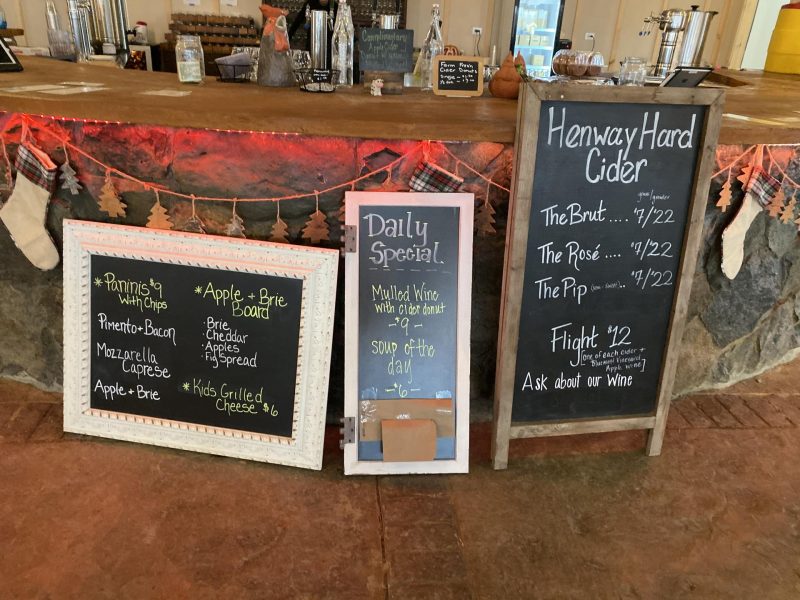 Complimentary
Apple Cider
Farm Fresh
Cider Donuts
* Paninis $9
With Chips
Pimento + Bacon
Mozzarella
Caprese
Apple + Brie
* Apple + Brie
Board
· Brie
· Cheddar
· Apples
· Fig Spread
* Kids Grilled
Cheese $6
Daily
Special
Mulled Wine
with cider donut
- $9 -
soup of the
day
- $6 -
Henway Hard
Cider
glass/growler
The Brut .... $7/22
The Rosé .... $7/22
The Pip (semi-sweet) .. $7/22
Flight $12
[One of each cider +
Bluemont Vineyard
Apple Wine]
Ask about our Wine